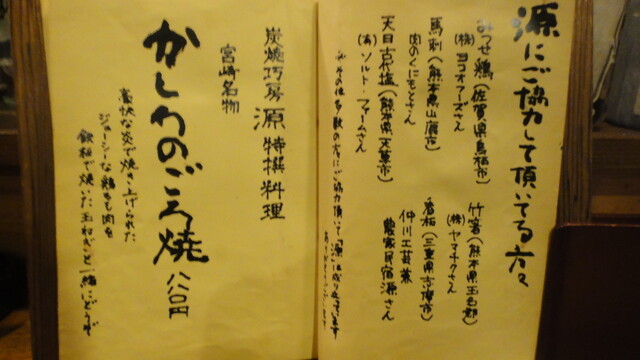 源にご協力して頂いてる方々
みつせ鶏(佐賀県鳥栖市)
(株)ヨコオフーズさん
馬刺(熊本県山鹿市)
肉のくにもとさん
天日古代塩(熊本県天草市)
(有)ソルト・ファームさん
竹箸(熊本県玉名郡)
(株)ヤマチクさん
看板(三重県志摩市)
仲川工芸
農家民宿源さん
その他多数の方にご協力頂いて源は成り立ってます
炭焼巧房 源 特撰料理
宮崎名物
かしわのごろ焼 八八〇円
豪快な炎で焼き上げられた
ジューシーな鶏もも肉を
鉄板で焼いた玉ねぎと一緒にどうぞ